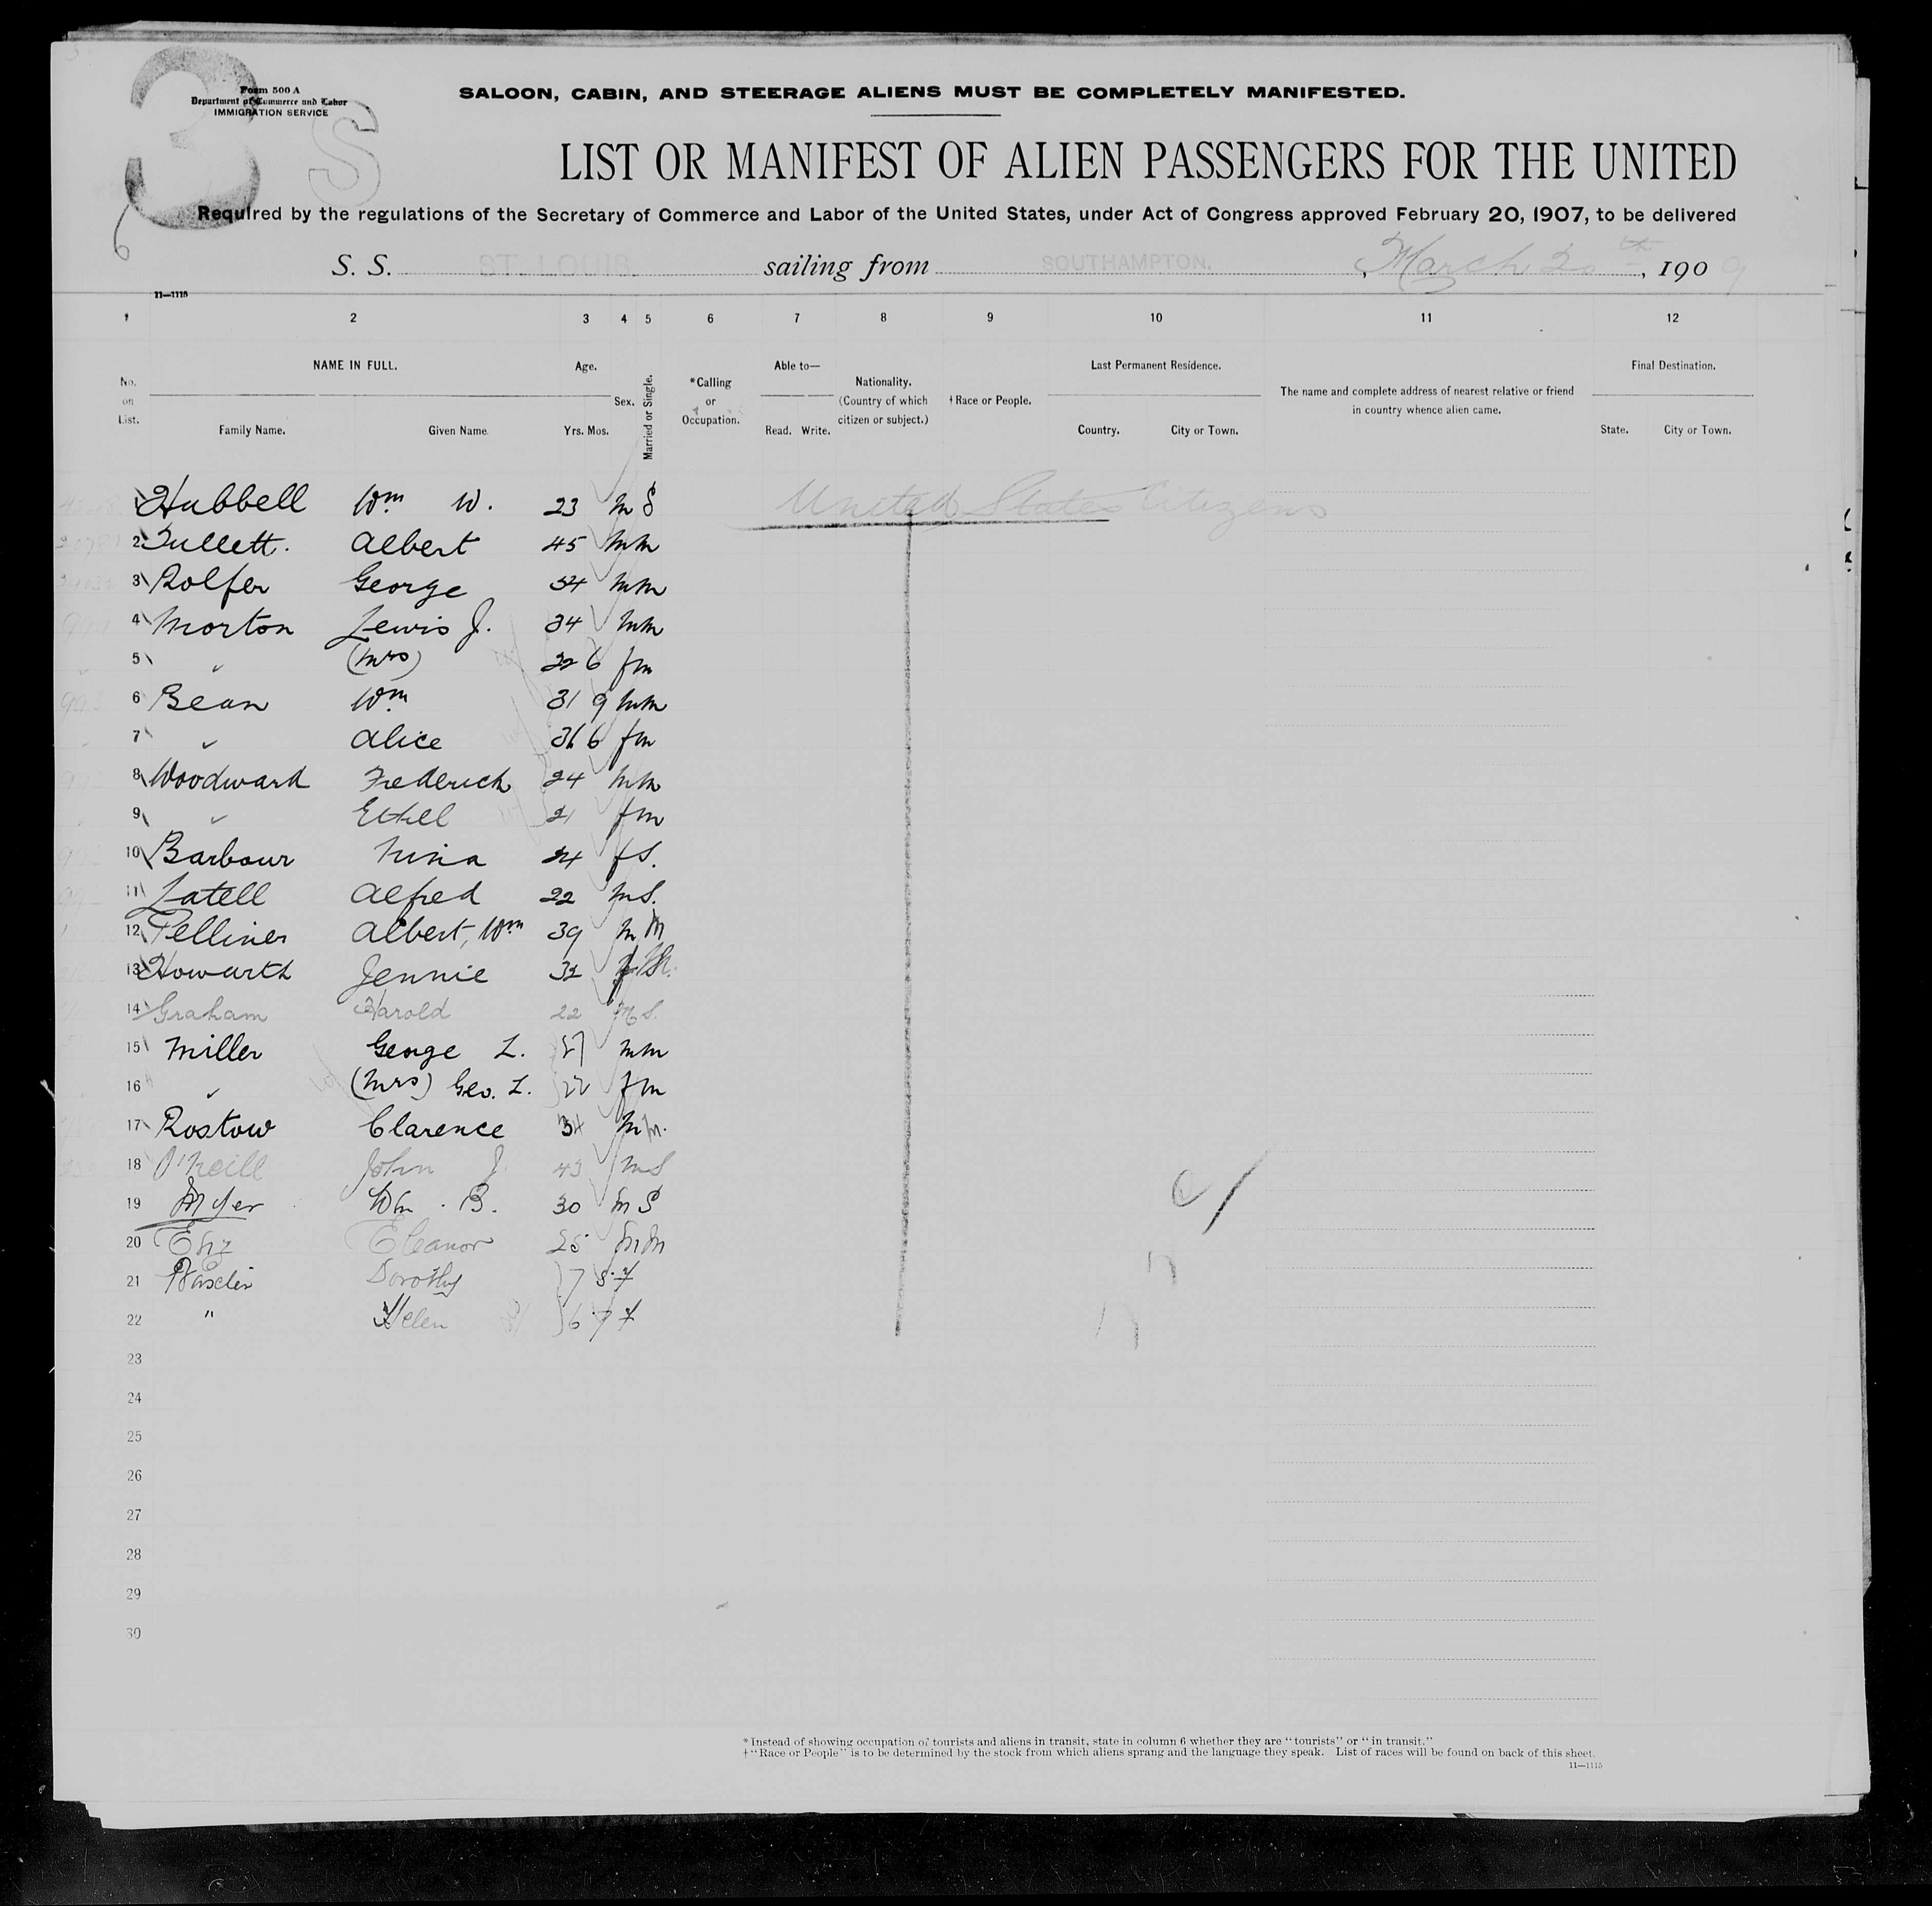 3
S
6
Form 500 A
Department of Commerce and Labor
IMMIGRATION SERVICE
SALOON, CABIN, AND STEERAGE ALIENS MUST BE COMPLETELY MANIFESTED.
LIST OR MANIFEST OF ALIEN PASSENGERS FOR THE UNITED
Required by the regulations of the Secretary of Commerce and Labor of the United States, under Act of Congress approved February 20, 1907, to be delivered
S. S. ST. LOUIS sailing from SOUTHAMPTON. , March 20th, 1909
11—1115
1 2 3 4 5 6 7 8 9 10 11 12
No. on List. NAME IN FULL. Age. Sex. Married or Single. *Calling or Occupation. Able to— Nationality. (Country of which citizen or subject.) †Race or People. Last Permanent Residence. The name and complete address of nearest relative or friend in country whence alien came. Final Destination.
Family Name. Given Name. Yrs. Mos. Read. Write. Country. City or Town. State. City or Town.
1 Hubbell Wm W. 23 m S United States Citizens
2 Tullett. Albert 45 m m
3 Rolfer George 54 m m
4 Morton Lewis J. 34 m m
5 " (Mrs) 32 6 f m
6 Bean Wm 31 9 m m
7 " Alice 36 6 f m
8 Woodward Frederick 24 m m
9 " Ethel 21 f m
10 Barbour Nina 24 f S.
11 Latell Alfred 22 m S.
12 Pelliner Albert, Wm 39 m M
13 Howarth Jennie 32 f
14 Graham Harold 22 M S.
15 Miller George L. 27 m m
16 " (Mrs) Geo. L. 22 f m
17 Rostow Clarence 34 m m.
18 O'Neill John J. 43 m S
19 Myer Wm. B. 30 m S
20 Eleanor 25 m m
21 Dorothy 7 8 f
22 " Helen 6 7 f
23
24
25
26
27
28
29
30
*Instead of showing occupation of tourists and aliens in transit, state in column 6 whether they are "tourists" or "in transit."
†"Race or People" is to be determined by the stock from which aliens sprang and the language they speak. List of races will be found on back of this sheet.
11—1115